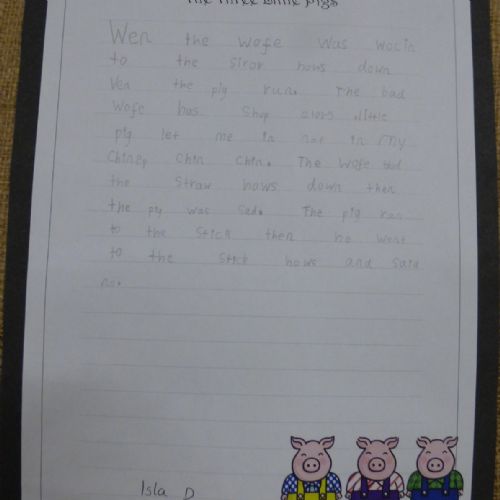 The Three Little Pigs
Wen the wofe was wocin
to the Stror hows down
Ven the pig run. The bad
Wofe has Shop little
pig let me in not in my
Chin Chin. The Wofe
the Straw hows down then
the pig was Sad. The pig ran
to the Stick then he went
to the Stick hows and said
no.
Isla D